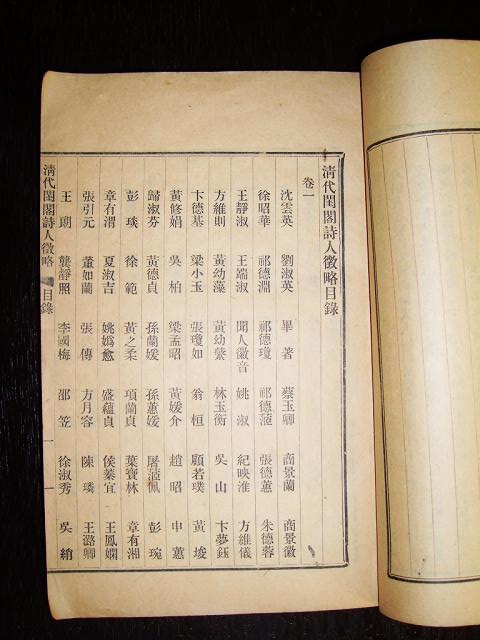 清代閨閣詩人徵略目錄
卷一
沈雲英 劉淑英 畢著 蔡玉卿 商景蘭 商景徽
徐昭華 祁德淵 祁德瓊 祁德茞 張德蕙 朱德蓉
王靜淑 王端淑 聞人徽音 姚淑 紀映淮 方維儀
方維則 黃幼藻 黃幼蘩 林玉衡 吳山 卞夢鈺
卞德基 梁小玉 張瓊如 翁桓 顧若璞 黃埈
黃修娟 吳柏 梁孟昭 黃媛介 趙昭 申蕙
歸淑芬 黃德貞 孫蘭媛 孫蕙媛 屠茞佩 彭琬
彭琰 徐範 黃之柔 項蘭貞 葉寶林 章有湘
章有渭 夏淑吉 姚嬀愈 盛蘊貞 侯蓁宜 王鳳嫻
張引元 董如蘭 張傳 方月容 陳璘 王潞卿
王玥 龔靜照 李國梅 邵笠 徐淑秀 吳綃
清代閨閣詩人徵略 目錄 一